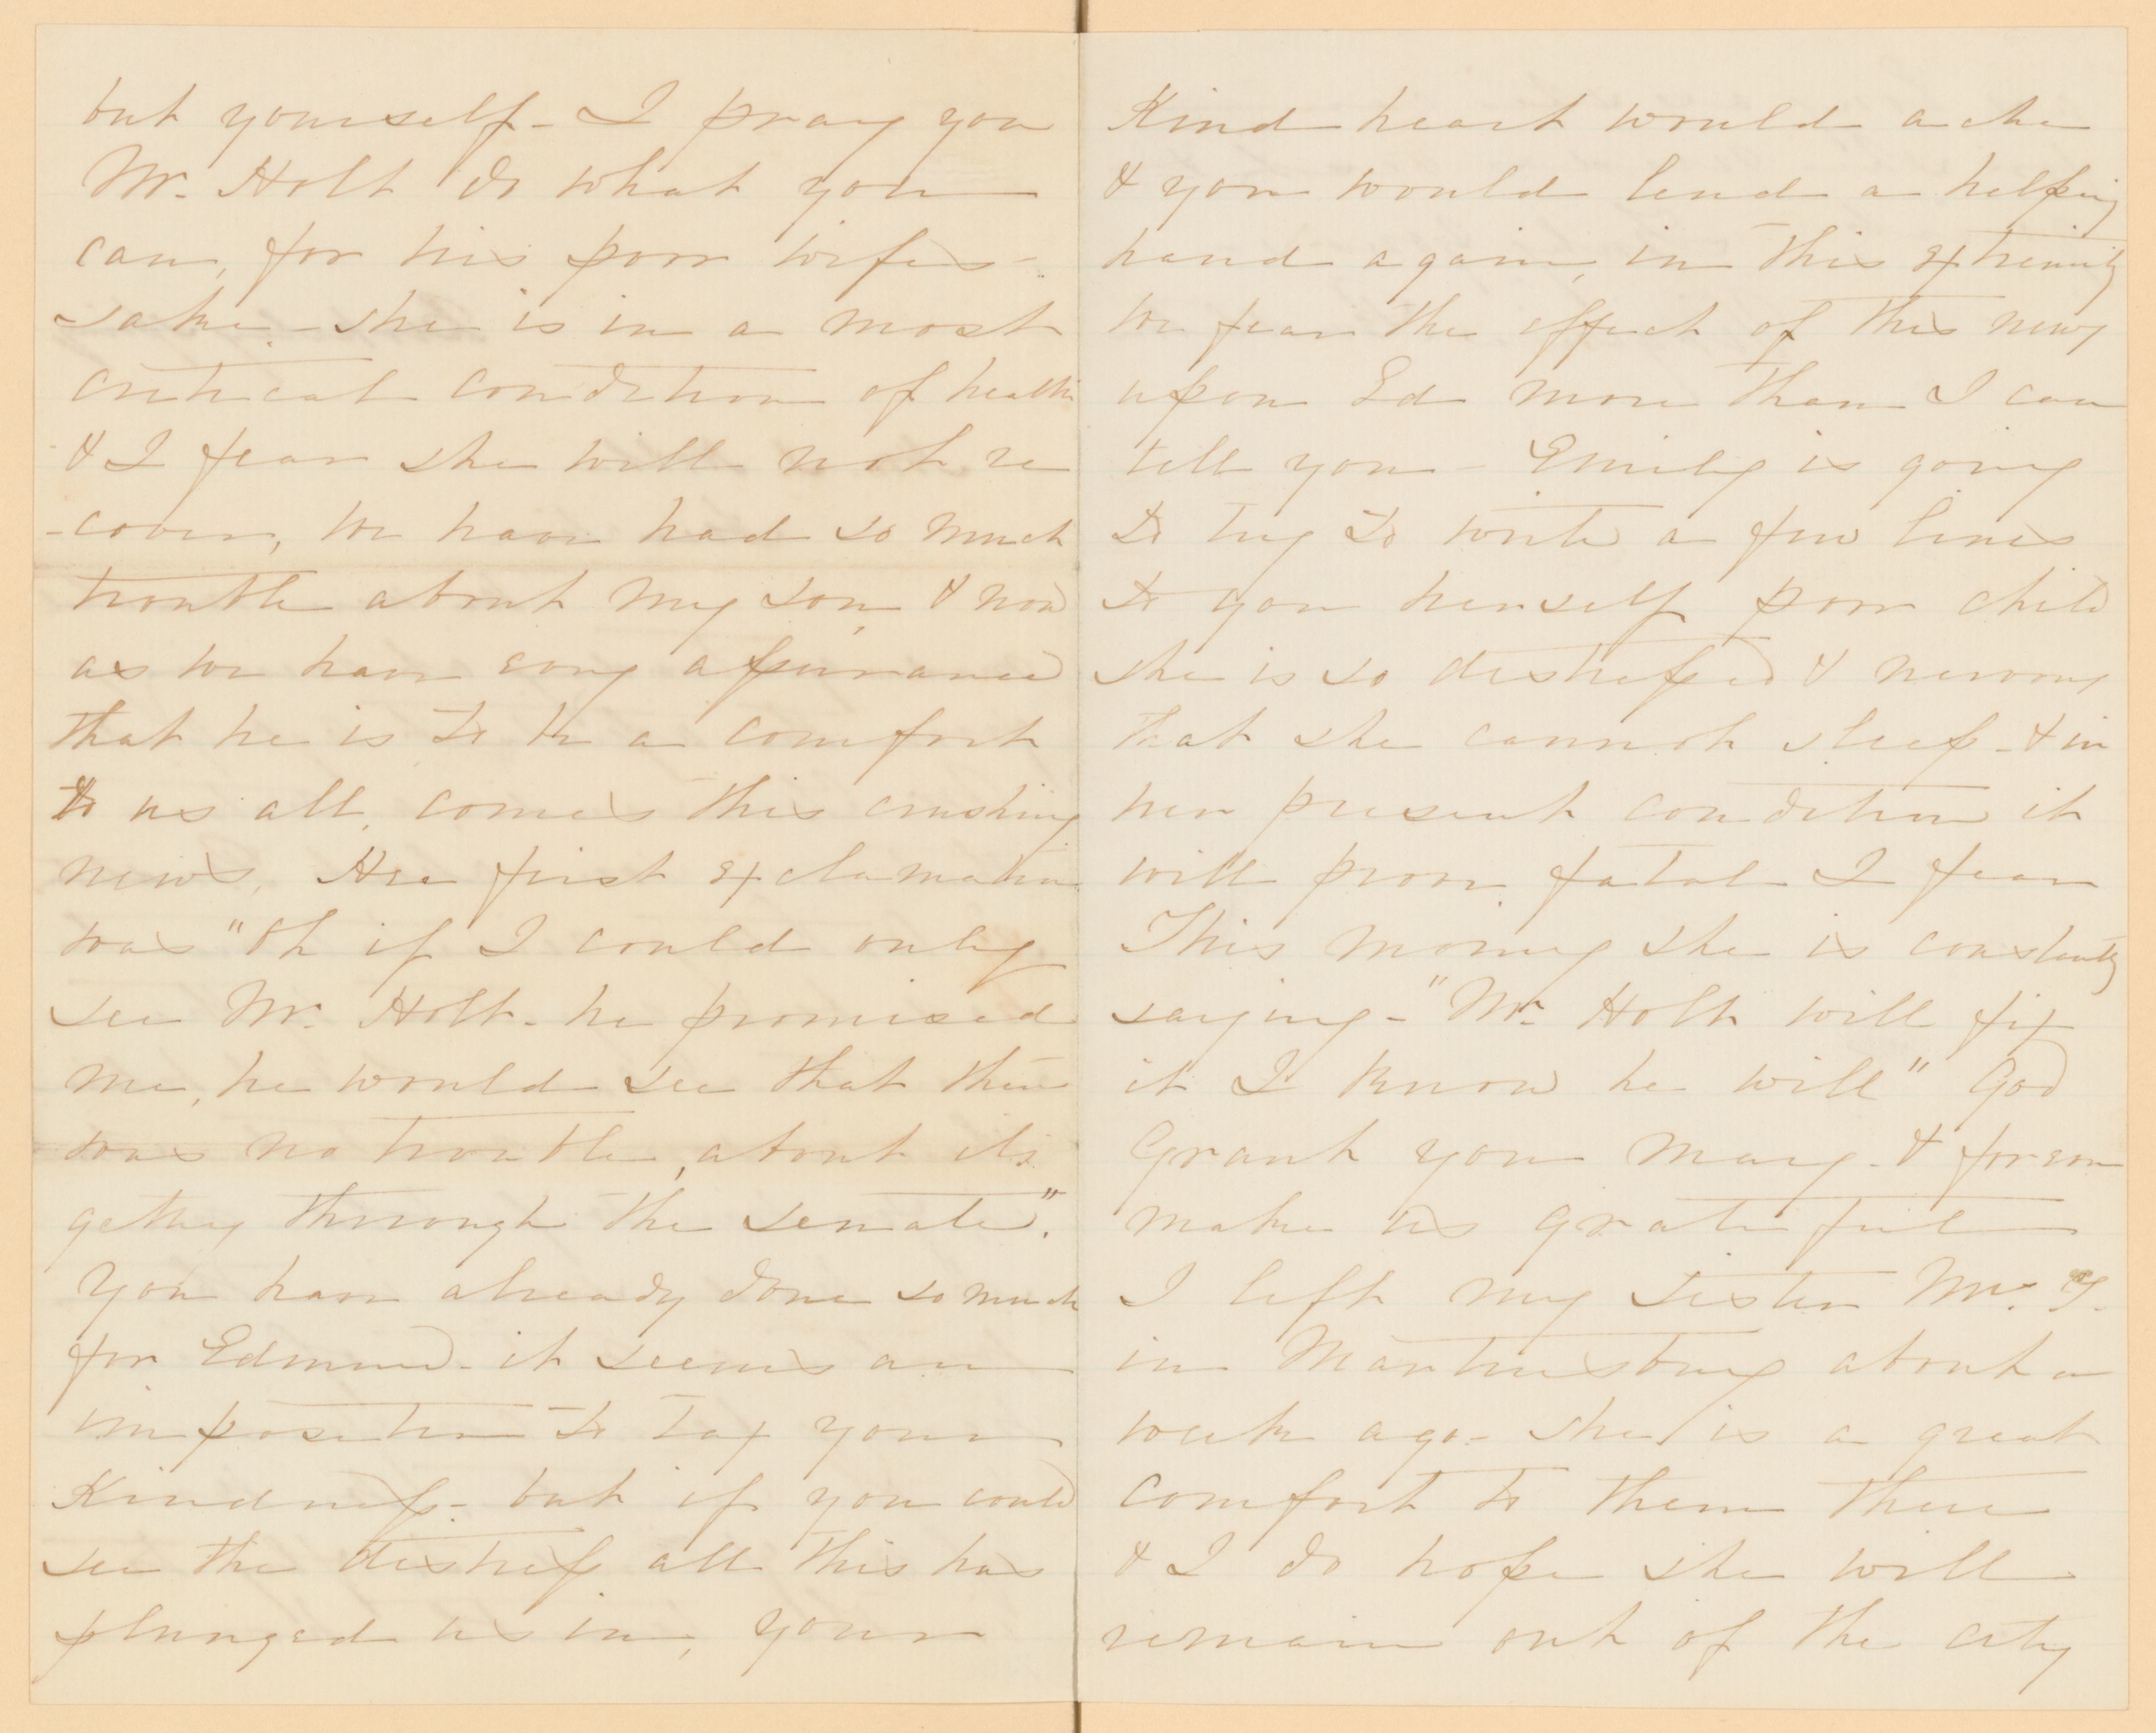 but yourself - I pray you
Mr. Holt do what you
can, for his poor wifes -
sake - she is in a most
critical condition of health
& I fear she will not re
-cover, we have had so much
trouble about my son, & now
as we have every assurance
that he is to be a comfort
to us all, comes this crushing
news. Her first exclamation
was "Oh if I could only
see Mr. Holt - he promised
me, he would see that there
was no trouble, about its
getting through the senate".
You have already done so much
for Edmund - it seems an
imposition to tax your
Kindness - but if you could
see the distress all this has
plunged us in, your
Kind heart would ache
& you would lend a helping
hand again, in this extremity
we fear the effect of this news
upon Ed more than I can
tell you - Emily is going
to try to write a few lines
to you herself poor child
she is so distressed & nervous
that she cannot sleep - & in
her present condition it
will prove fatal I fear
This morning she is constantly
saying - "Mr. Holt will fix
it I know he will" God
Grant you may - & forever
make us grateful
I left my sister Mrs.
in Martinsburg about a
week ago - she is a great
comfort to them there
& I do hope she will
remain out of the city